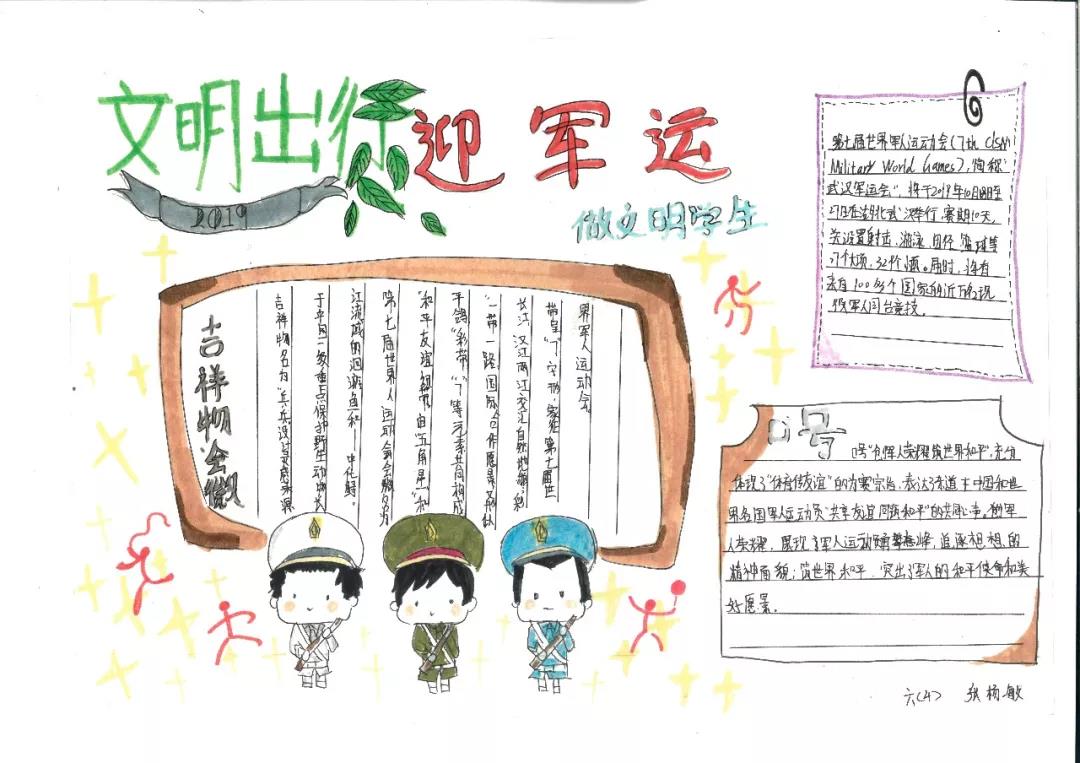 文明出行 迎军运
2019
做文明学生
第七届世界军人运动会(7th CISM
Military World Games), 简称"
武汉军运会", 将于2019年10月18日至
27日在湖北武汉举行,赛期10天,
共设置射击、游泳、田径、篮球等
27个大项、届时,将有
来自100多个国家的近万名现
役军人同台竞技。
吉祥物会徽
吉祥物名为"兵兵"设计灵感来源
于中国一级重点保护野生动物长
江流域的洄游鱼和——中华鲟。
第七届世界军人运动会会徽名为
"和平友谊纽带"由"五角星""和
平鸽""彩带""7"等元素共同构成
"一带一路国际合作愿景又形似
长江、汉江两江交汇自然地貌,彩
带呈"7"字形,象征第七届世
界军人运动会。
口号
口号"创军人荣耀筑世界和平",充分
体现了"体育传友谊"的办赛宗旨,表达了东道主中国和世
界各国军人运动员"共享友谊同筑和平"的共同心声。创军
人荣耀,展现了军人运动员攀高峰,追逐梦想的
精神面貌;筑世界和平,突出了军人的和平使命和美
好愿景。
六(4) 张杨敏